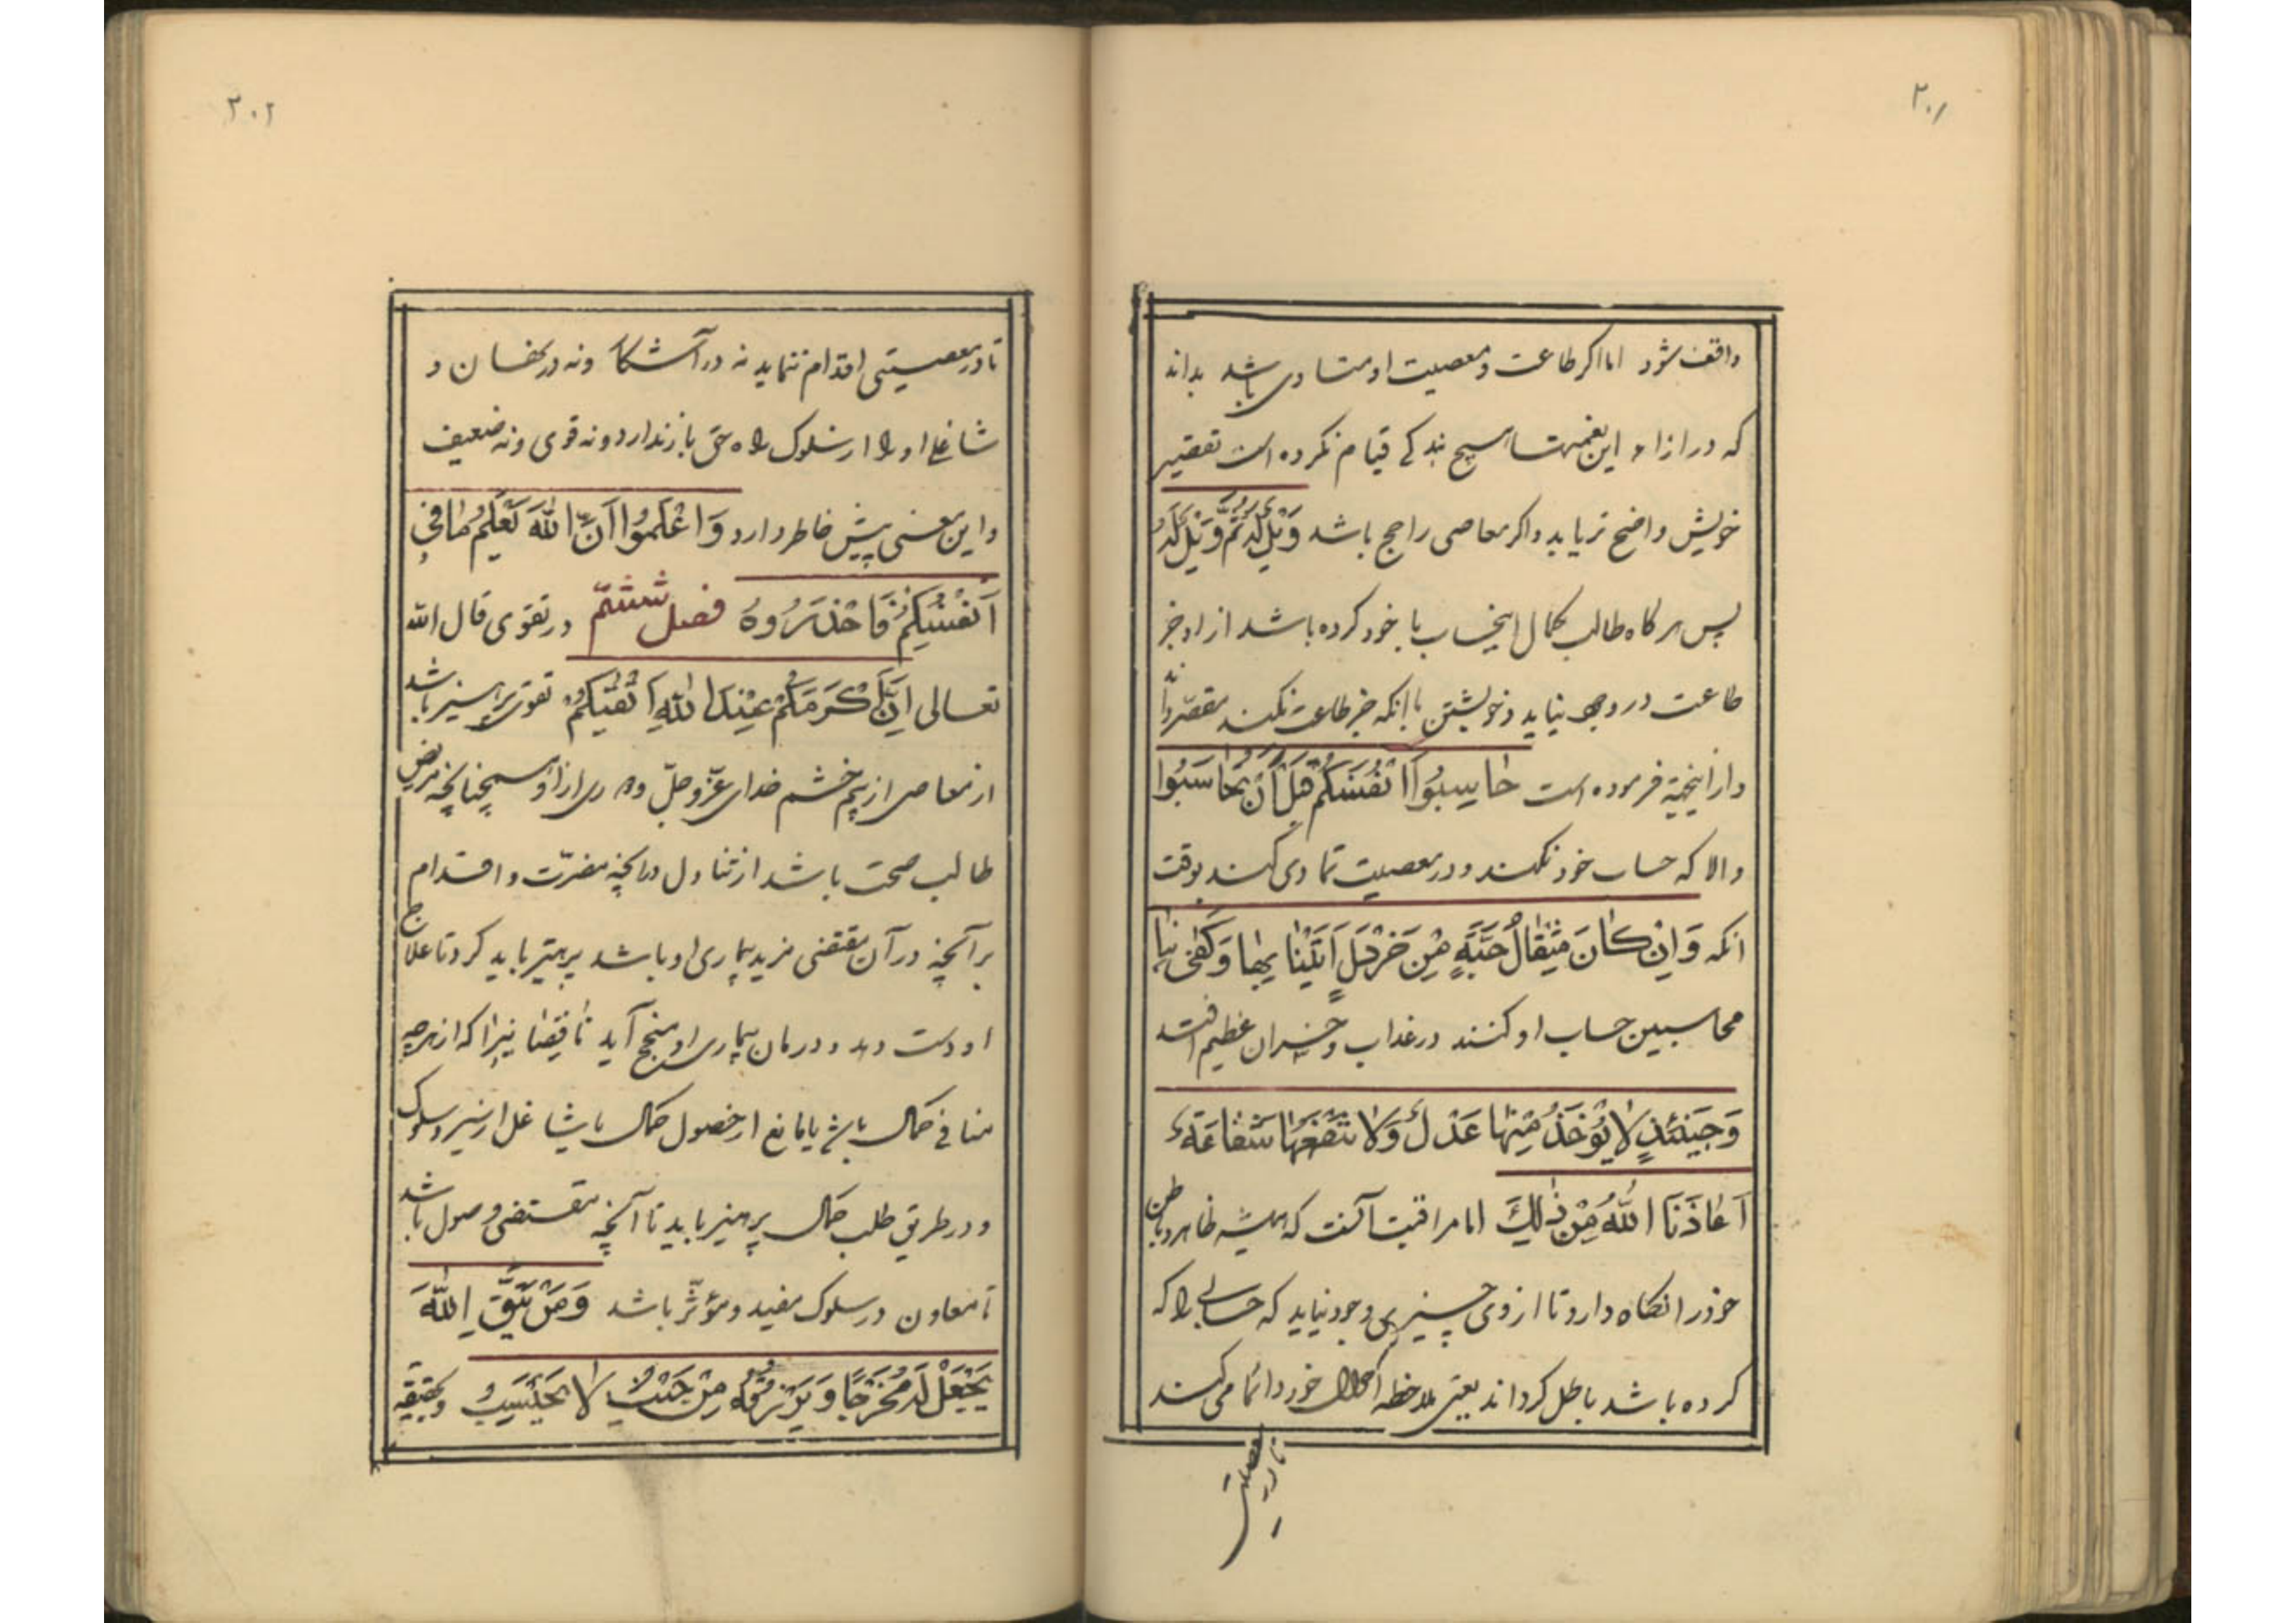 ۲۰۱
واقف شود اما اگر طاعت و معصیت او متساوی باشد بداند
که در ازاء این نعمتها هیچ بندگی قیام نکرده است تقصیر
خویش واضح تر یابد و اگر معاصی راجح باشد وَیْلٌ لَهُ ثُمَّ وَیْلٌ لَهُ
پس هر گاه طالب کمال این حساب با خود کرده باشد از او جز
طاعت در وجود نیاید و خویشتن با آنکه جز طاعت نکند مقصّر داند
و از اینجهة فرموده است حاسِبُوا اَنْفُسَکُمْ قَبْلَ اَنْ تُحاسَبُوا
و الا که حساب خود نکند و در معصیت تمادی کند بوقت
انکه وَاِنْ کانَ مِثْقالَ حَبَّةٍ مِنْ خَرْدَلٍ اَتَیْنا بِها وَکَفی بِنا
محاسبین حساب او کنند در عذاب و خسران عظیم افتد
وَحِینَئِذٍ لا یُؤْخَذُ مِنْها عَدْلٌ وَلا تَنْفَعُها شَفاعَةٌ
اَعاذَنَا اللّٰهُ مِنْ ذٰلِكَ اما مراقبت آنست که همیشه ظاهر و باطن
خود را نگاه دارد تا از وی چیزی وجود نیاید که حسناتی را که
کرده باشد باطل گرداند یعنی ملاحظه احوال خود دائما می کند
تا در معصیتی
۲۰۲
تا در معصیتی اقدام ننماید نه در آشکارا و نه در نهان و
شاغلی او را از سلوک راه حق باز ندارد و نه قوی و نه ضعیف
و این معنی پیش خاطر دارد وَاعْلَمُوا اَنَّ اللّٰهَ یَعْلَمُ ما فی
اَنْفُسِکُمْ فَاحْذَرُوهُ فصل ششم در تقوی قال الله
تعالی اِنَّ اَکْرَمَکُمْ عِنْدَ اللّٰهِ اَتْقیکُمْ تقوی پرهیز باشد
از معاصی از بیم خشم خدای عزّ و جلّ و دوری از او همچنانچه مریض
طالب صحت باشد از تناول در آنچه مضرّت و اقدام
بر آنچه در آن مقتضی مزید بیماری او باشد پرهیز باید کرد تا علاج
او دست دهد و درمان بیماری او منجح آید ناقصان نیز را که از هرچه
منافی کمال باشد یا مانع از حصول کمال یا شاغل از سیر و سلوک
و در طریق طلب کمال پرهیز باید تا آنچه مقتضی وصول باشد
تا معاون در سلوک مفید و مؤثّر باشد وَمَنْ یَتَّقِ اللّٰهَ
یَجْعَلْ لَهُ مَخْرَجًا وَیَرْزُقْهُ مِنْ حَیْثُ لا یَحْتَسِبُ و بحقیقة